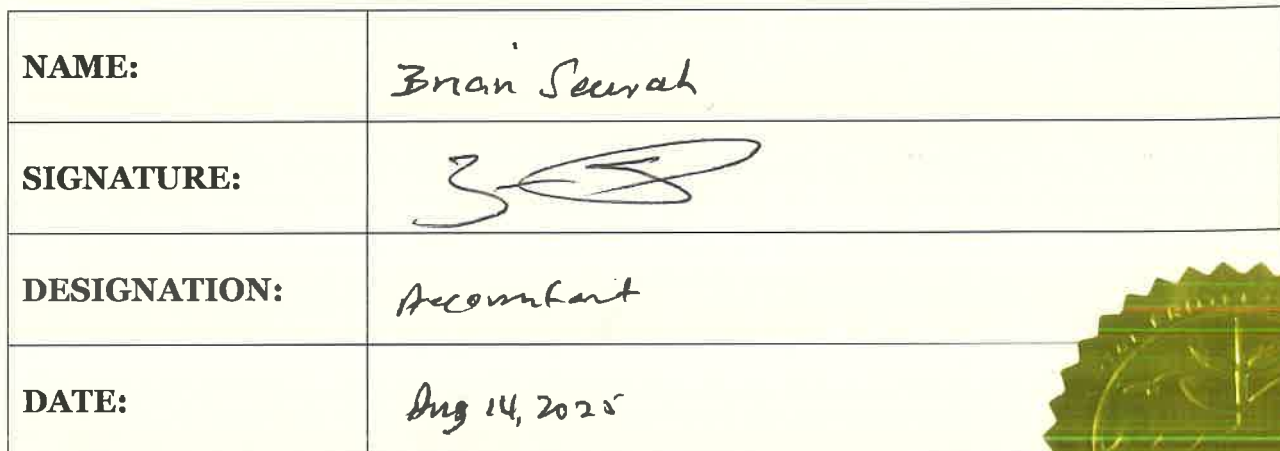 NAME: Brian Seurah
SIGNATURE:
DESIGNATION: Accountant
DATE: Aug 14, 2025